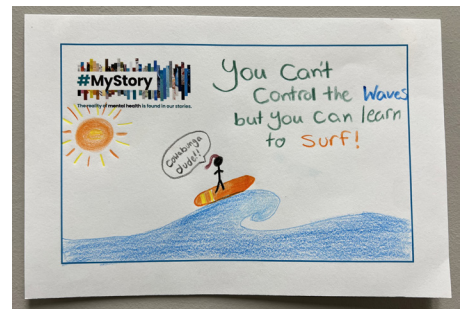 #MyStory
The reality of mental health is found in our stories.
You Can't
Control the Waves
but you can learn
to Surf!
Cowabunga
dude!!